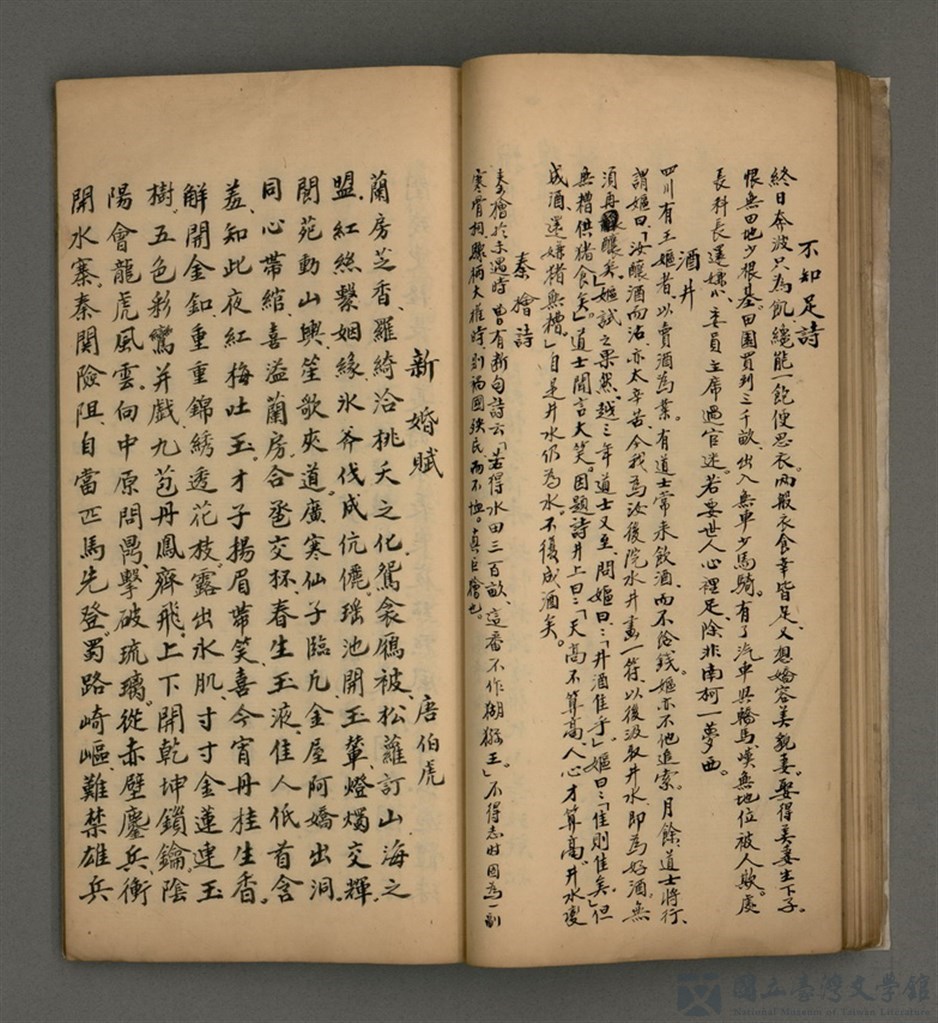 不知足詩
終日奔波只為飢、纔能一飽便思衣。兩般衣食幸皆足、又想嬌容美貌妻。娶得美妻生下子。
恨無田地少根基。田園買到三千畝、出入無車少馬騎。有了汽車與轎馬、嘆無地位被人欺。處
長科長還嫌小、委員主席過官迷。若要世人心裡足、除非南柯一夢西。
酒井
四川有王嫗者、以賣酒為業。有道士常來飲酒、而不給錢。嫗亦不他追索。月餘、道士將行、
謂嫗曰、汝釀酒而沽、亦太辛苦、今我為汝後院水井畫一符、以後汲取井水、即為好酒、無
須再釀矣」嫗試之果然、越三年道士又至、問嫗曰：「井酒佳乎」嫗曰：「佳則佳矣。」但
無槽供猪食矣」道士聞言大笑。因題詩井上曰：「天高不算高、人心才算高。井水變
成酒、還嫌猪無槽。」自是井水仍為水、不復成酒矣。
秦檜詩
秦檜於未遇時、曾有斷句詩云「若得水田三百畝、這番不作猢猻王。」不得志時因為一副
寒霄相、驟柄大權時、則禍國殃民、而不恤。真巨檜也。
新婚賦　唐伯虎
蘭房芝香、羅綺洽桃夭之化、鴛衾鴈被、松蘿訂山海之
盟、紅絲繫姻緣、氷斧伐成伉儷。瑶池開玉輦、燈燭交輝、
閬苑動山輿、笙歌夾道。廣寒仙子臨凡、金屋阿嬌出洞、
同心帶綰、喜溢蘭房、合巹交杯、春生玉液、佳人低首含
羞、知此夜紅梅吐玉、才子揚眉帶笑、喜今宵丹桂生香。
解開金釦、重重錦綉透花枝。露出水肌、寸寸金蓮連玉
樹。五色彩鸞并戲、九苞丹鳳齊飛。上下開乾坤鎖鑰。陰
陽會龍虎風雲。向中原問鼎、擊破琉璃。從赤壁鏖兵、衝
開水寨。秦関險阻、自當匹馬先登。蜀路崎嶇、難禁雄兵
國立臺灣文學館
National Museum of Taiwan Literature